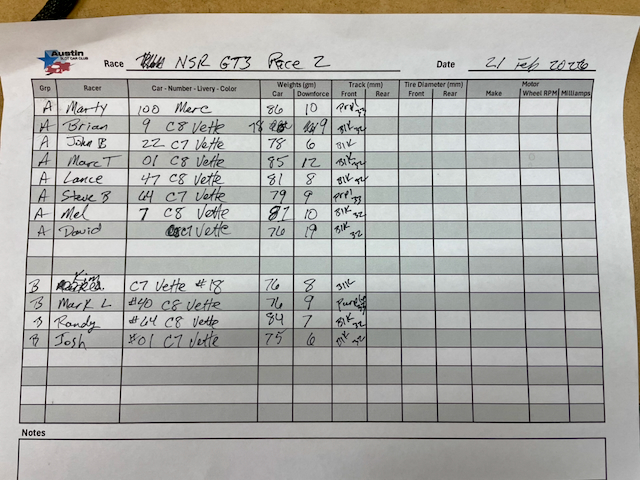 Austin
SLOT CAR CLUB
Race NSR GT3 Race 2 Date 21 Feb 2026
Weights (gm) Track (mm) Tire Diameter (mm) Motor
Grp Racer Car - Number - Livery - Color Car Downforce Front Rear Front Rear Make Wheel RPM Milliamps
A Marty 100 Merc 86 10 Prpl 32
A Brian 9 C8 Vette 78 9 Blk 32
A John B 22 C7 Vette 78 6 Blk 32
A Marc T 01 C8 Vette 85 12 Blk 32
A Lance 47 C8 Vette 81 8 Blk 32
A Steve B 64 C7 Vette 79 9 Prpl 33
A Mel 7 C8 Vette 81 10 Blk 32
A David C7 Vette 76 19 Blk 32
B Kim C7 Vette #18 76 8 Blk
B Mark L #40 C8 Vette 76 9
B Randy #64 C8 Vette 84 7 Blk 32
B Josh #01 C7 Vette 75 6 Blk 32
Notes